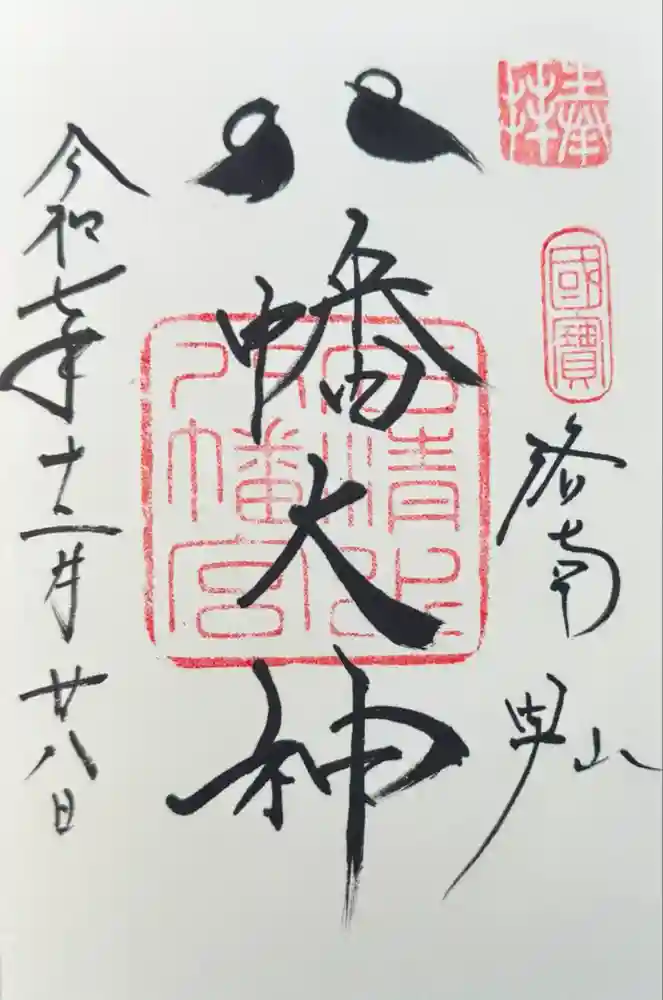 奉拝
國寶
洛南
男山
八幡大神
石清水
八幡宮
令和七年十二月廿八日